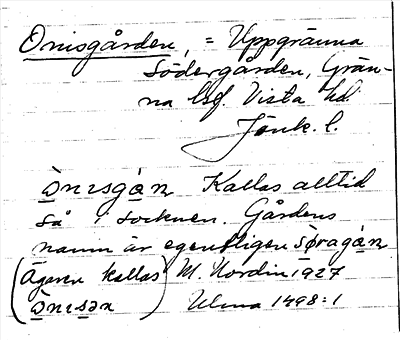 Onisgården, = Uppgränna
Södergården, Grän-
na lsf. Vista hd.
Jönk. l.
ònɩsgàn Kallas alltid
så i socknen. Gårdens
namn är egentligen söragàn
(Ägaren kallas) M. Nordin 1927
ònɩsən Ulma 1498:1